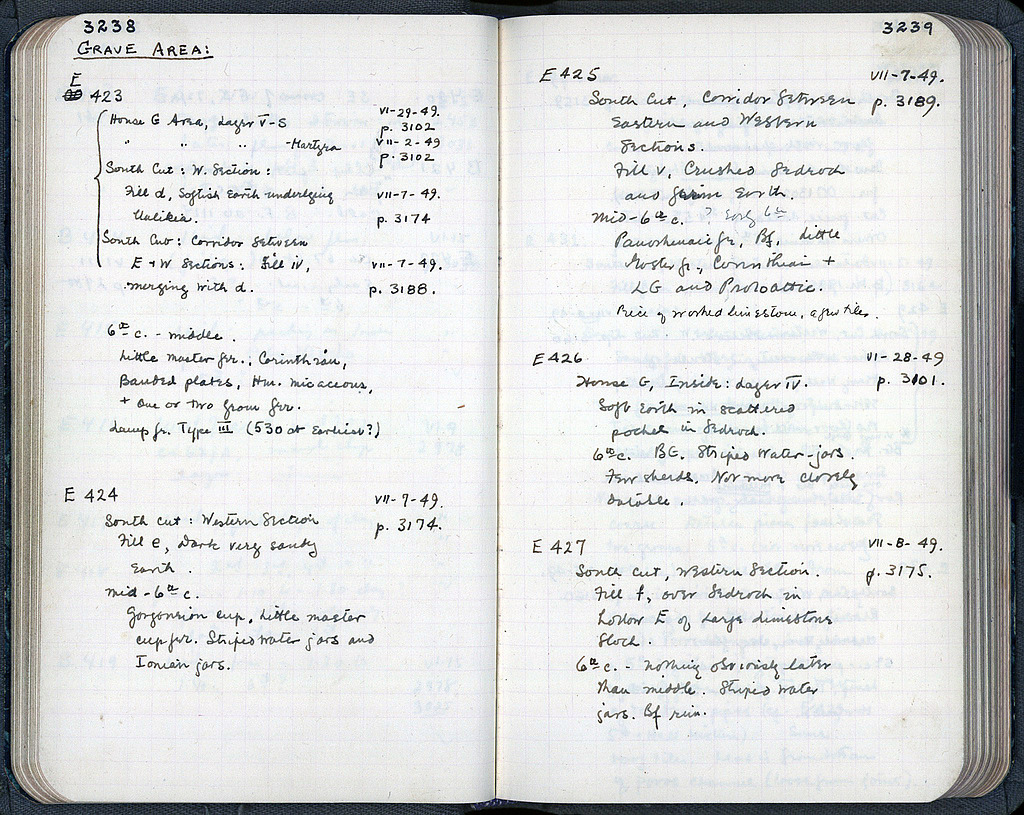 3238
GRAVE AREA:
E
423
House G Area, Layer V-S VII-29-49. p. 3102
" " " -Martyra VII-2-49 p. 3102
South Cut: W. Section:
Fill d, Softish Earth underlying VII-7-49.
Unlikia. p. 3174
South Cut: Corridor between
E + W Sections: Fill IV, VII-7-49.
merging with d. p. 3188.
6th c. - middle.
Little master fr., Corinthian,
Banded plates, Hm. micaceous,
+ one or two from fr.
Lamp fr. Type III (530 at Earliest?)
E 424 VII-7-49.
South cut: Western Section p. 3174.
Fill e, Dark very sandy
Earth.
Mid-6th c.
Gorgoneion cup, Little master
cup fr. Striped water jars and
Ionian jars.
3239
E 425 VII-7-49.
South Cut, Corridor between p. 3189.
Eastern and Western
Sections.
Fill V, Crushed bedrock
and Earth.
Mid-6th c. ? Early 6th
Panathenaic fr., Bf, Little
Master fr., Corinthian +
LG and Protoattic.
Piece of worked limestone, a few tiles.
E 426 VI-28-49
House G, Inside: Layer IV. p. 3101.
Soft Earth in scattered
pocket in bedrock.
6th c. BG. Striped water-jars.
Few sherds. Not more closely
datable.
E 427 VII-8-49.
South cut, Western Section. p. 3175.
Fill f, over bedrock in
hollow E of large limestone
block.
6th c. - nothing obviously later
than middle. Striped water
jars. Bf rim.